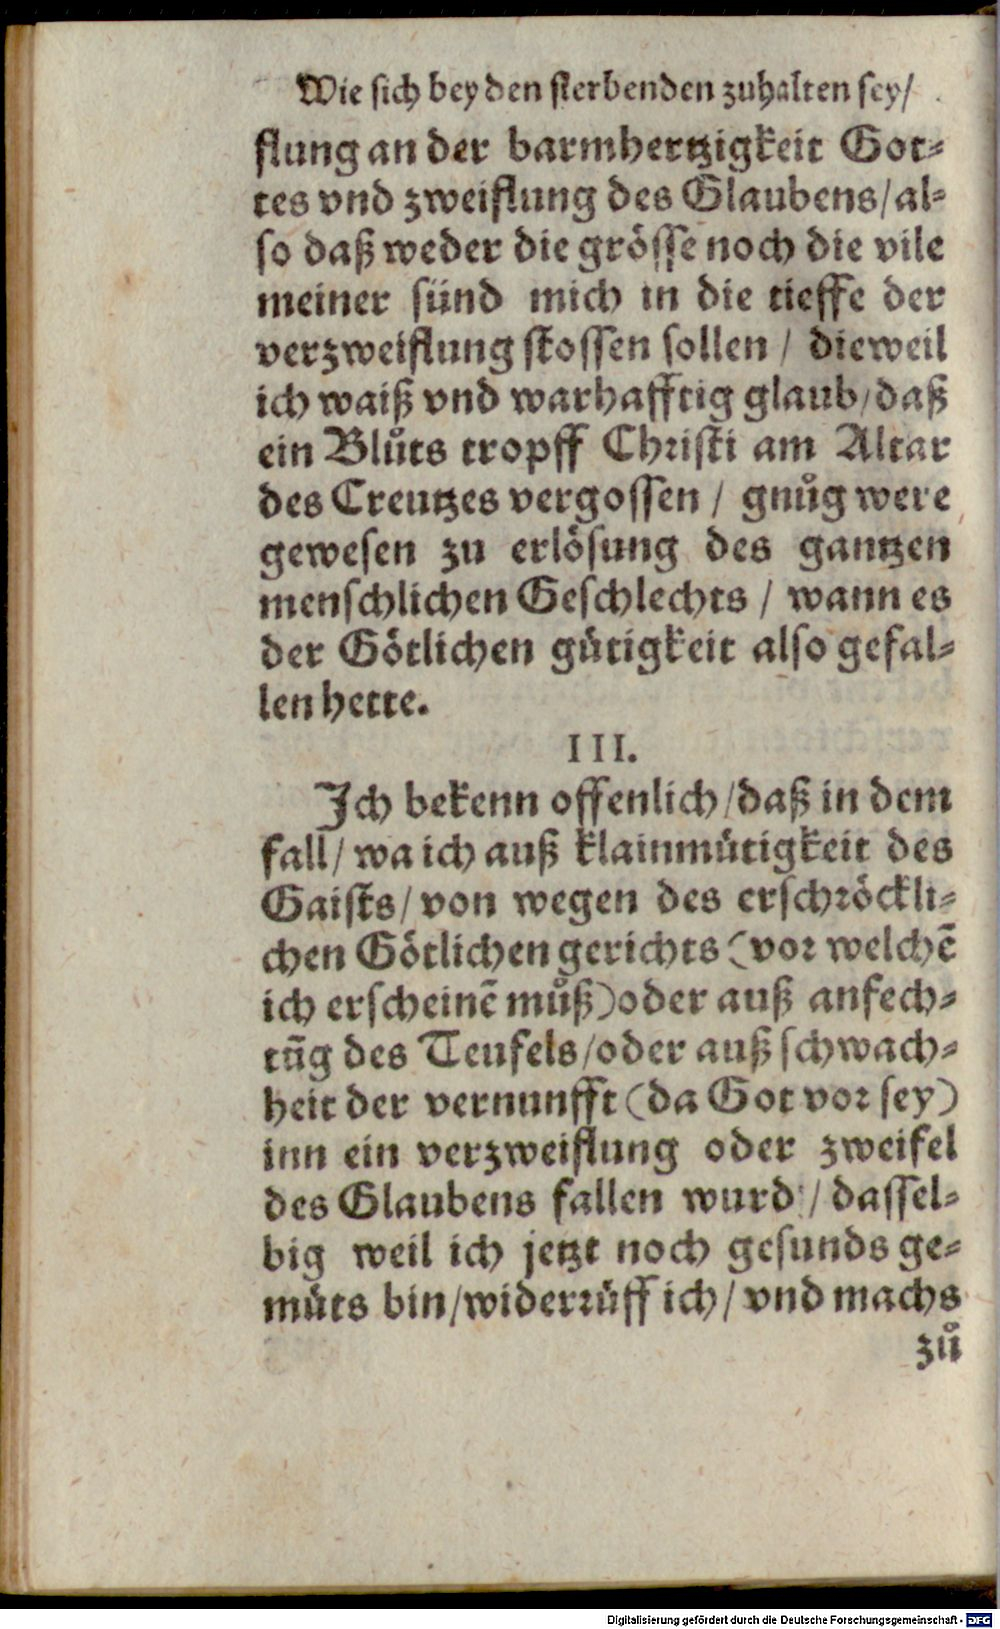 Wie sich bey den sterbenden zuhalten sey/
flung an der barmhertzigkeit Got-
tes vnd zweiflung des Glaubens/al-
so daß weder die grösse noch die vile
meiner sünd mich in die tieffe der
verzweiflung stossen sollen / dieweil
ich waiß vnd warhafftig glaub/daß
ein Blůts tropff Christi am Altar
des Creutzes vergossen / gnůg were
gewesen zu erlösung des gantzen
menschlichen Geschlechts / wann es
der Götlichen gütigkeit also gefal-
len hette.
III.
Ich bekenn offenlich/daß in dem
fall/ wa ich auß klainmütigkeit des
Gaists/ von wegen des erschröckli-
chen Götlichen gerichts (vor welchē
ich erscheinē můß)oder auß anfech-
tūg des Teufels/oder auß schwach-
heit der vernunfft (da Got vor sey)
inn ein verzweiflung oder zweifel
des Glaubens fallen wurd / dassel-
big weil ich jetzt noch gesunds ge-
můts bin/widerrůff ich/ vnd machs
zů
Digitalisierung gefördert durch die Deutsche Forschungsgemeinschaft - DFG